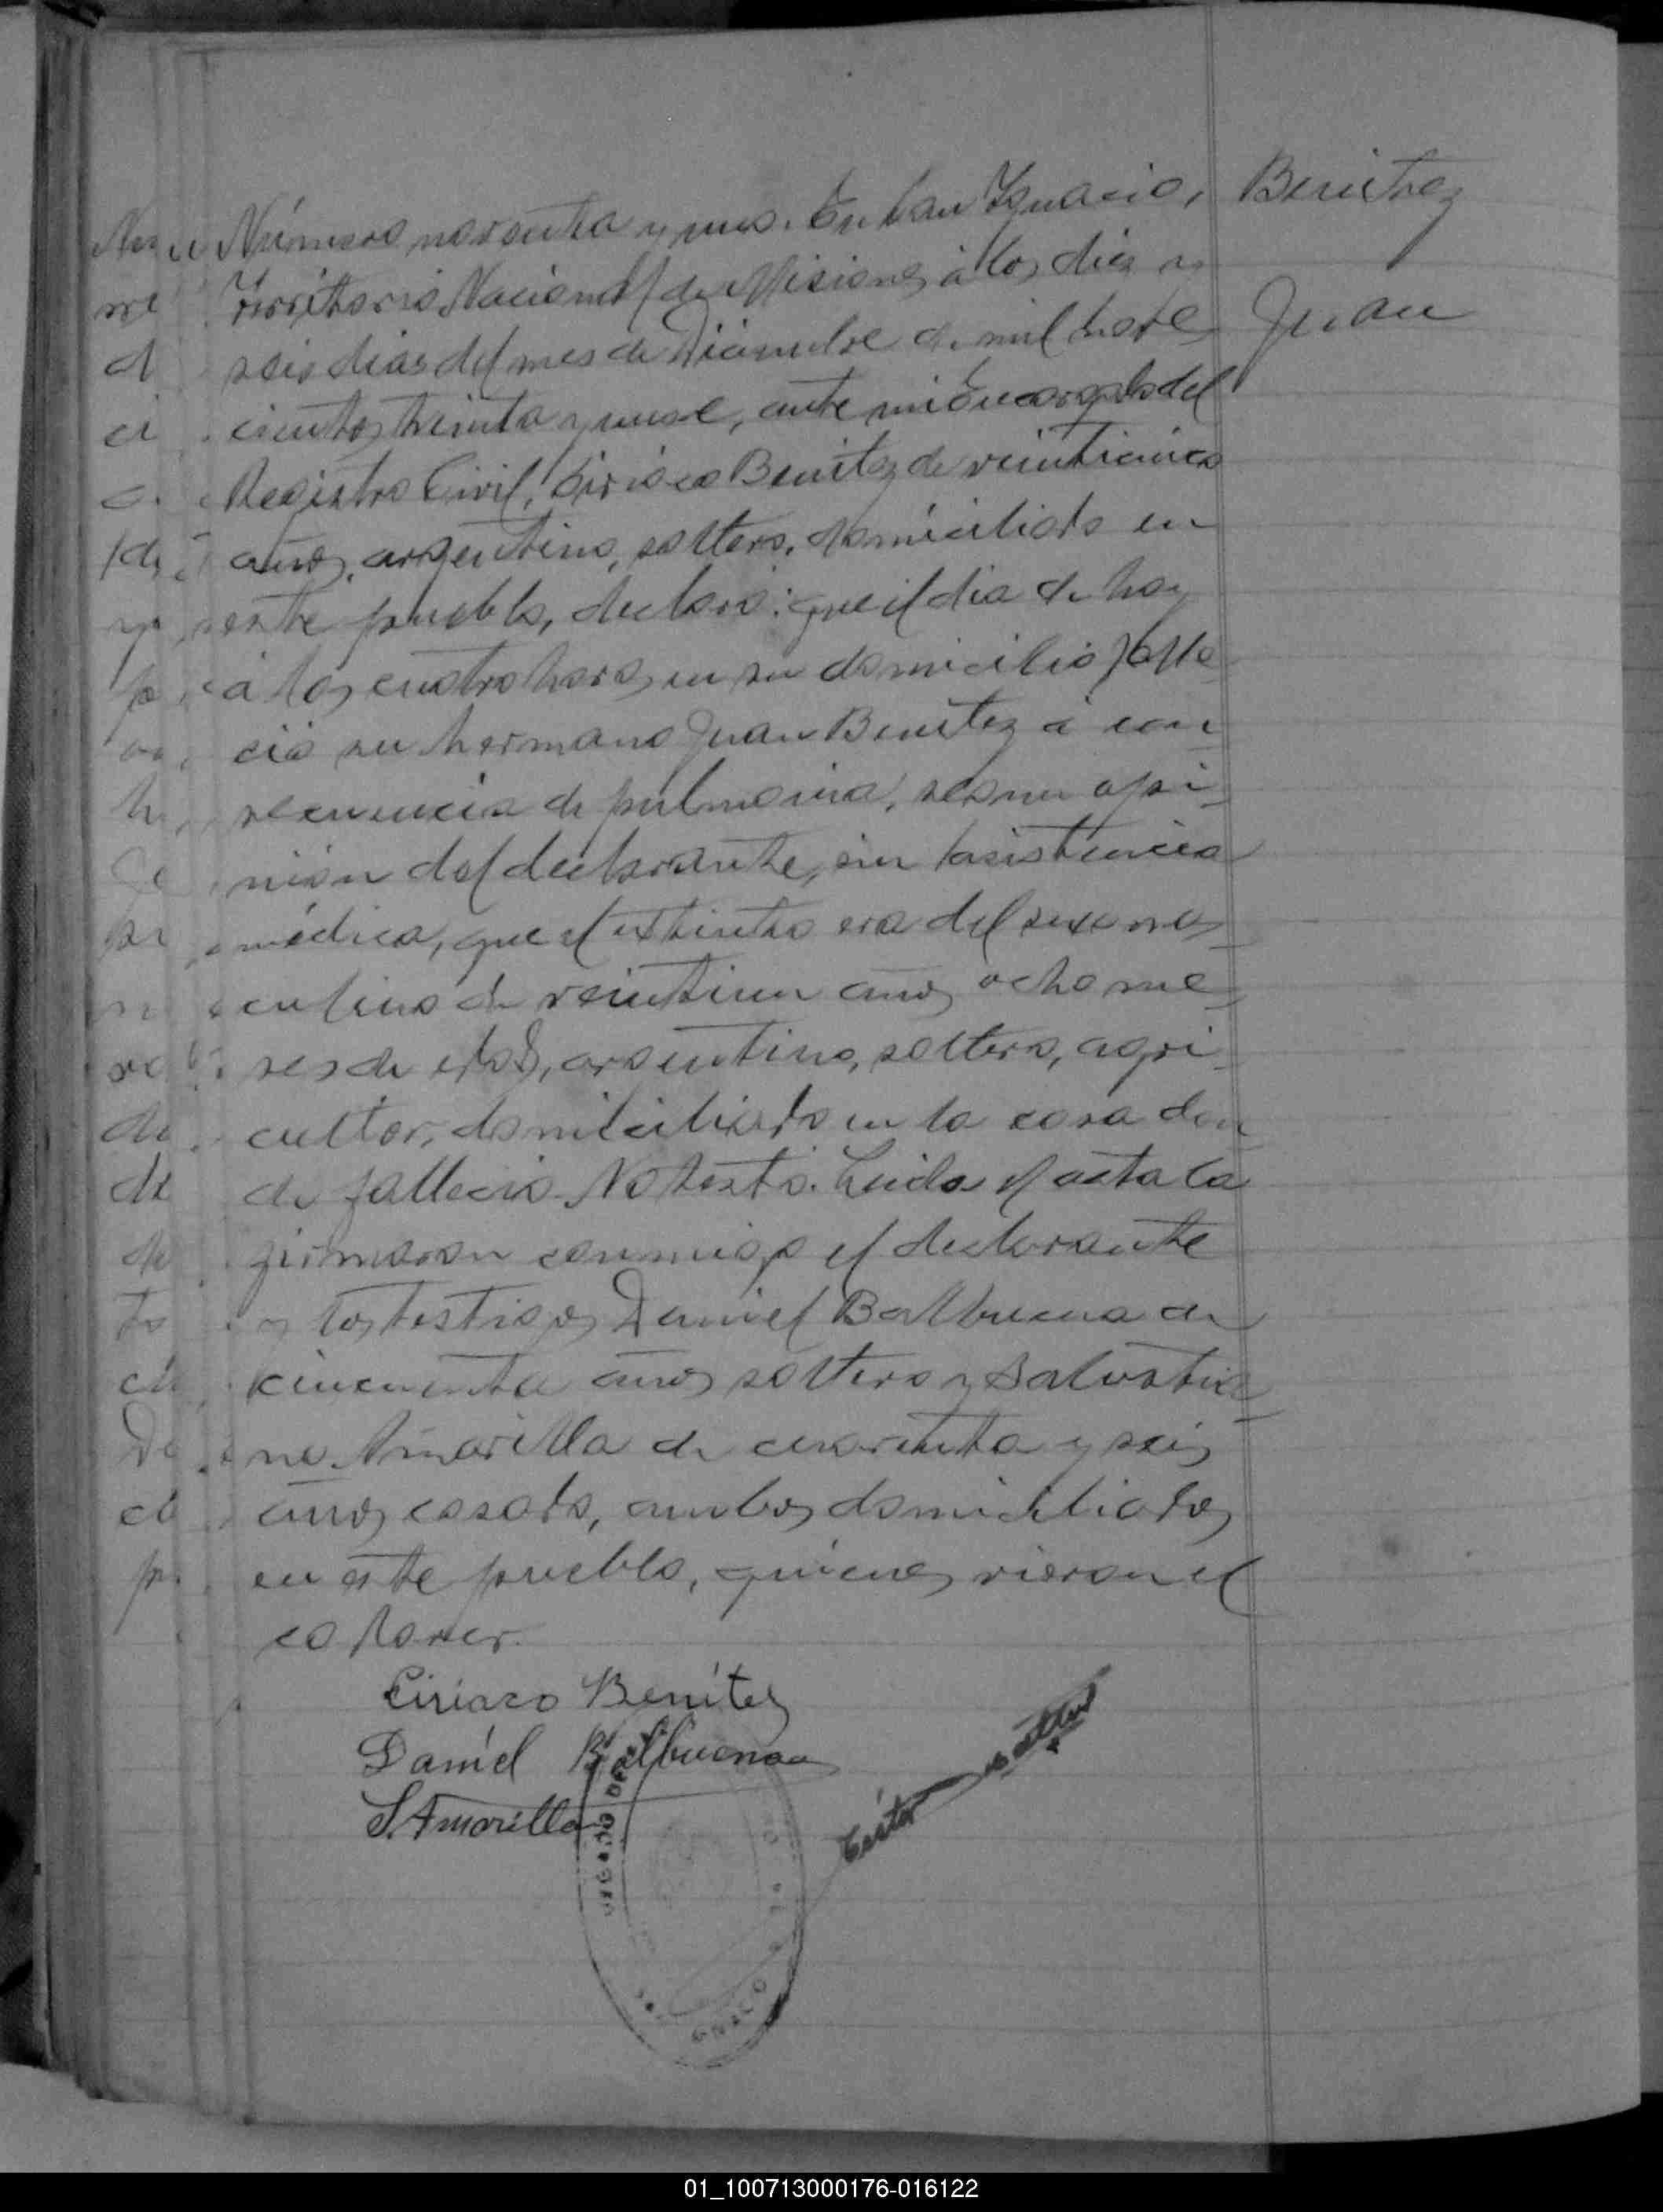 Benitez
Juan
Número noventa y uno. En San Ignacio,
Territorio Nacional de Misiones á los diez y
seis dias del mes de Diciembre de mil nove
cientos treinta y nueve, ante mi Encargado del
Registro Civil, Ciriaco Benitez de veinticinco
años, argentino, soltero, domiciliado en
este pueblo, declaró: que el dia de hoy
á las cuatro horas en su domicilio falle
ció su hermano Juan Benitez á con
secuencia de pulmonia, segun opi
nión del declarante, sin asistencia
médica, que el extinto era del sexo mas
culino de veintiun años ocho me
ses de edad, argentino, soltero, agri
cultor, domiciliado en la casa don
de falleció. No testó. Leida el acta la
firmaron conmigo el declarante
y los testigos Daniel Balbuena de
cincuenta años soltero y Salustia
no Amarilla de cuarenta y seis
años casado, ambos domiciliados
en este pueblo, quienes vieron el
cadaver.
Ciriaco Benítez
Daniel Balbuena
S. Amarilla
01_100713000176-016122